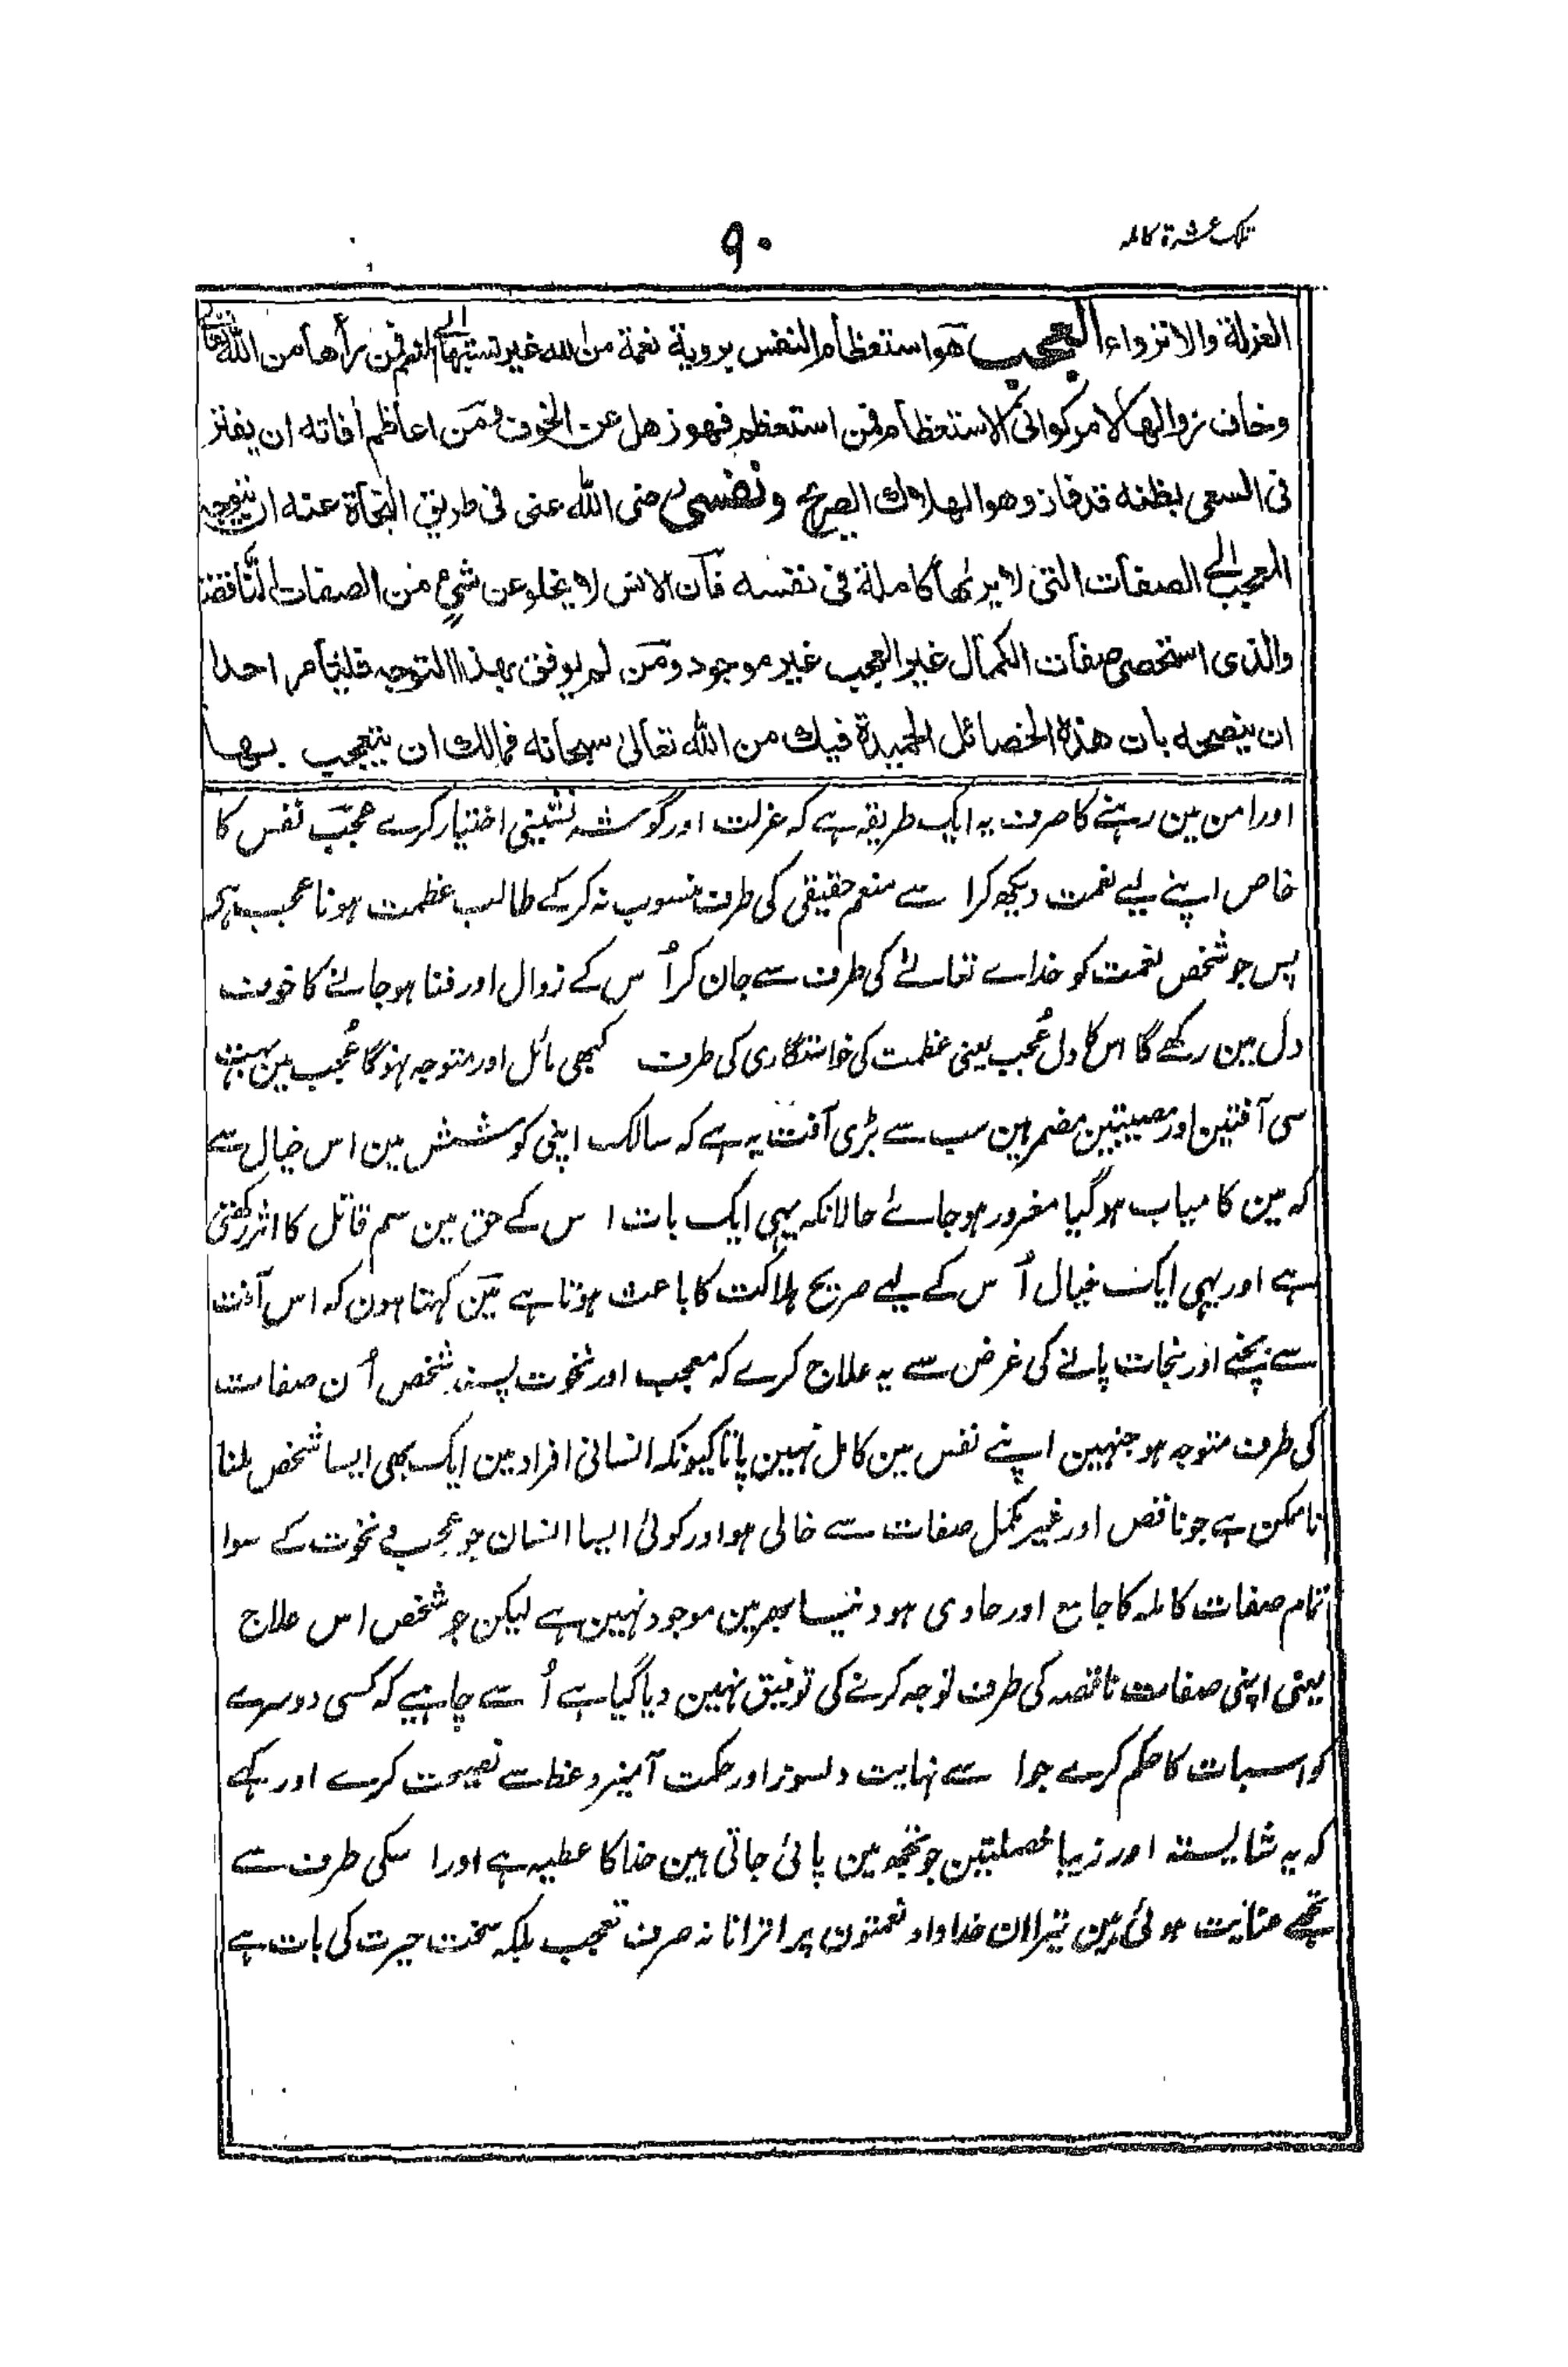 تلک عشرة کاملہ
۹۰
العزلة والانزواء العجب هو استعظام النفس بروية نعمة من الله غير نسبتها الى المنعم فمن رأها من الله تعالى
وخاف زوالها لا مركوا الى الاستعظام فمن استعظم فهو ذهل عن الخوف ومن اعاظم أفاته ان يفتر
فى السعى بظنه قد فاز وهو الهلاك الصريح ونفسى رضى الله عنى فى طريق النجاة عنه ان يتوجه
المعجب الى الصفات التى لا يرىٰها كاملة فى نفسه فان الانس لا يخلو عن شئ من الصفات الناقضة
والذى استحصى صفات الكمال غير العجب غير موجود ومن لم يوفق بهذا التوجه فليأمر احدا
ان ينصحه بان هذه الخصائل الحميدة فيك من الله تعالىٰ سبحانه فمالك ان يتعجب بها
اور امن مین رہنے کا صرف یہ ایک طریقہ ہے کہ عزلت اور گوشہ نشینی اختیار کرے عجب نفس کا
خاص اپنے لیے نعمت دیکھ کر اسے منعم حقیقی کی طرف منسوب نہ کر کے طالب عظمت ہونا عجب ہے
پس جو شخص نعمت کو خداے تعالےٰ کی طرف سے جان کر اُس کے زوال اور فنا ہو جانے کا خوف
دل مین رکھے گا اس کا دل عُجب یعنی عظمت کی خواستگاری کی طرف کبھی مائل اور متوجہ نہوگا عُجب مین بہت
سی آفتین اور مصیبتین مضمر ہین سب سے بڑی آفت یہ ہے کہ سالک اپنی کوشش مین اس خیال سے
کہ مین کامیاب ہو گیا مغرور ہو جائے حالانکہ یہی ایک بات اس کے حق مین سم قاتل کا اثر رکھتی
ہے اور یہی ایک خیال اُس کے لیے صریح ہلاکت کا باعث ہوتا ہے مین کہتا ہون کہ اس آفت
سے بچنے اور نجات پانے کی غرض سے یہ علاج کرے کہ معجب اور نخوت پسند شخص اُن صفات
کی طرف متوجہ ہو جنہین اپنے نفس مین کامل نہین پاتا کیونکہ انسانی افراد مین ایک بھی ایسا شخص ملنا
ناممکن ہے جو ناقص اور غیر مکمل صفات سے خالی ہو اور کوئی ایسا انسان جو عجب و نخوت کے سوا
تمام صفات کاملہ کا جامع اور حاوی ہو دنیا بھر مین موجود نہین ہے لیکن جو شخص اس علاج
یعنی اپنی صفات ناقصہ کی طرف توجہ کرنے کی توفیق نہین دیا گیا ہے اُسے چاہیے کہ کسی دوسرے
کو اس بات کا حکم کرے جو اسے نہایت دلسوز اور حکمت آمیز وعظ سے نصیحت کرے اور کہے
کہ یہ شایستہ اور زیبا خصلتین جو تجھ مین پائی جاتی ہین خدا کا عطیہ ہے اور اسکی طرف سے
تجھے عنایت ہوئی ہین تیرا ان خداداد نعمتون پر اترانا نہ صرف تعجب بلکہ سخت حیرت کی بات ہے